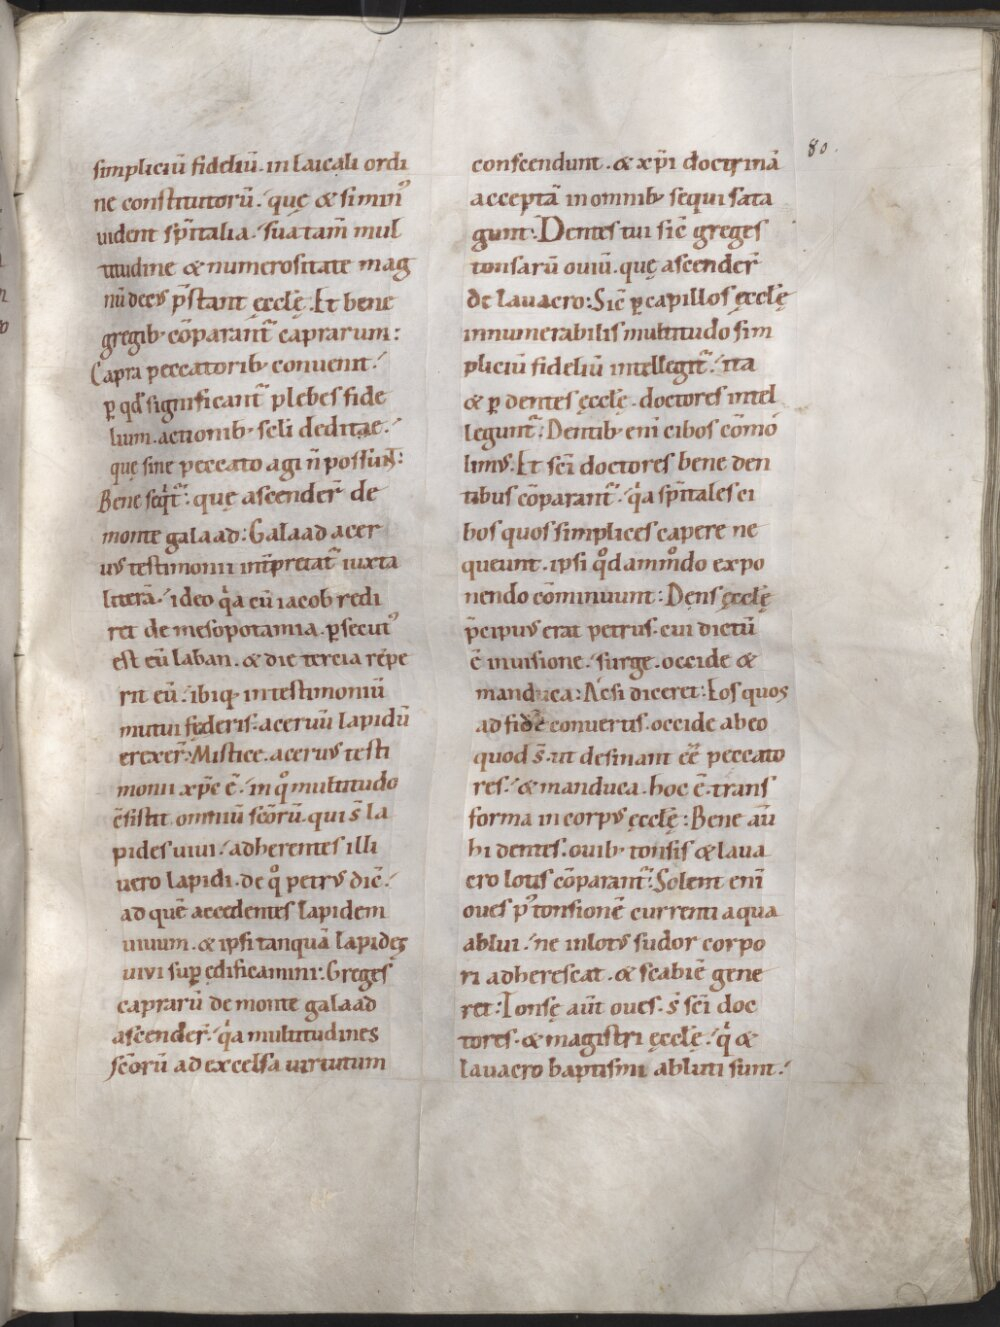 simpliciū fideliū. in laicali ordi
ne constitutorū. quę & si min᷒
uident sp̄italia. sua tam̄ mul
titudine & numerositate mag
nū decꝰ p̄stant ęcclę. Et bene
gregib; cōparant᷒ caprarum:
Capra peccatorib; conuenit.
ꝑ qđ significant᷒ plebes fide
lium. actionib; scli deditae.
quę sine peccato agi n̄ possunt:
Bene seqͥt᷒. quę ascender̄ de
monte galaad: Galaad acer
uꝰ testimonii int̄pretat᷒ iuxta
litterā. ideo qͥa cū iacob redi
ret de mesopotamia. ꝑsecut᷒
est eū laban. & die tercia rēpe
rit eū. ibiq; in testimoniū
mutui fęderis. aceruū lapidū
erexer̄. Mistice. aceruꝰ testi
monii xp̄c ē. in qͦ multitudo
c̄sistit omniū scōrū. qui s̄ la
pides uiui. adherentes illi
uero lapidi. de qͦ petrꝰ dic̄.
ad quē accedentes lapidem
uiuum. & ipsi tanquā lapides
uiui suꝑ ędificamini: Greges
caprarū de monte galaad
ascender̄. qͥa multitudines
scōrū ad excelsa uirtutum
80.
conscendunt. & xp̄i doctrinā
acceptā in omnib; sequi sata
gunt: Dentes tui sic̄ greges
tonsarū ouiū. quę ascender̄
de lauacro: Sic̄ ꝑ capillos ęcclę̄
innumerabilis multitudo sim
pliciū fideliū intellegit᷒. ita
& ꝑ dentes ęcclę̄. doctores intel
legunt᷒: Dentib; eni cibos cōmo
limꝰ. Et sc̄i doctores bene den
tibus cōparant᷒. qͥa sp̄itales ci
bos quos simplices capere ne
queunt. ipsi qͦdammͦdo expo
nendo cōminuunt: Dens ęcclę̄
p̄cipuꝰ erat petrus. cui dictū
ē in uisione. surge. occide &
manduca: Ac si diceret: Eos quos
ad fidē conuertis. occide ab eo
quod s̄. ut desinant ēē peccato
res. & manduca. hoc ē. trans
forma in corpꝰ ęcclę̄: Bene aū
hi dentes. ouib; tonsis & laua
cro lotis cōparant᷒: Solent enī
oues p᷒ tonsionē currenti aqua
ablui. ne inlotꝰ sudor corpo
ri adherescat. & scabiē gene
ret: Tonsę aūt oues. s̄ sc̄i doc
tores. & magistri ęcclę̄. qͥ &
lauacro baptismi abluti sunt.